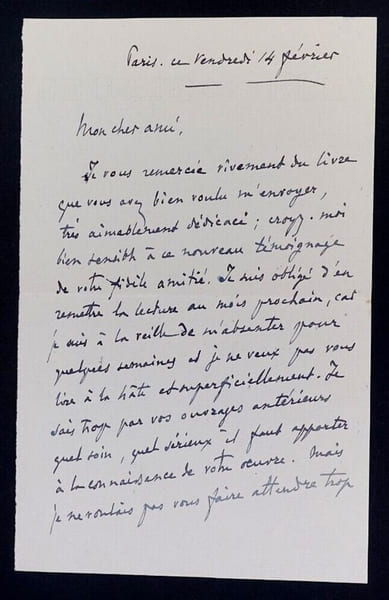 Paris. ce Vendredi 14 février
Mon cher ami,
Je vous remercie vivement du livre
que vous avez bien voulu m'envoyer,
très aimablement dédicacé ; croyez-moi
bien sensible à ce nouveau témoignage
de votre fidèle amitié. Je suis obligé d'en
remettre la lecture au mois prochain, car
je suis à la veille de m'absenter pour
quelques semaines et je ne veux pas vous
lire à la hâte et superficiellement. Je
sais trop par vos ouvrages antérieurs
quel soin, quel sérieux il faut apporter
à la connaissance de votre oeuvre. Mais
je ne voulais pas vous faire attendre trop